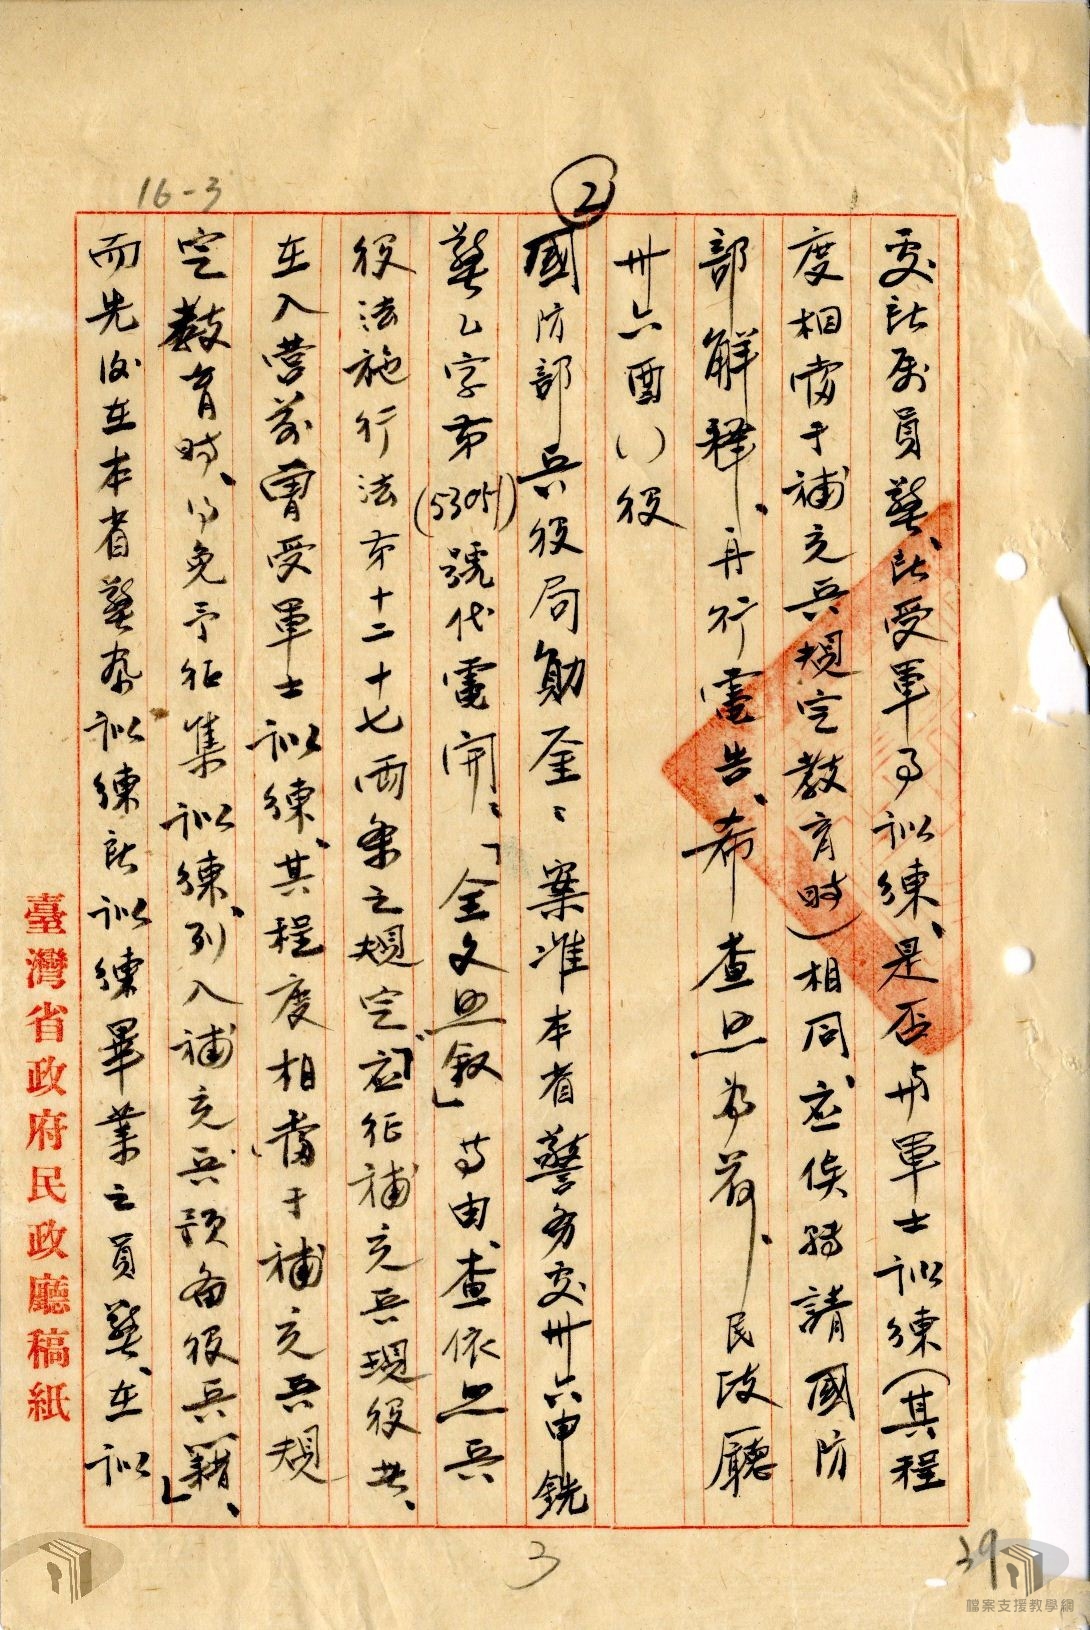 16-3
②
處訓練員警所受軍事訓練、是否與軍士訓練(其程
度相當于補充兵規定教育時)相同、應俟轉請國防
部解釋、再行電告、希 查照為荷、 民政廳
卅六酉()役
國防部兵役局勛鑒:案准本省警務處卅六申銑
警乙字第(53051)號代電開:「全文照敘」等由查依照兵
役法施行法第十二十七兩條之規定「應征補充兵現役者、
在入營前曾受軍士訓練、其程度相當于補充兵規
定教育時、得免予征集訓練、列入補充兵預備役兵籍」、
而先後在本省警察訓練所訓練畢業之員警、在訓
臺灣省政府民政廳稿紙
3
39
檔案支援教學網